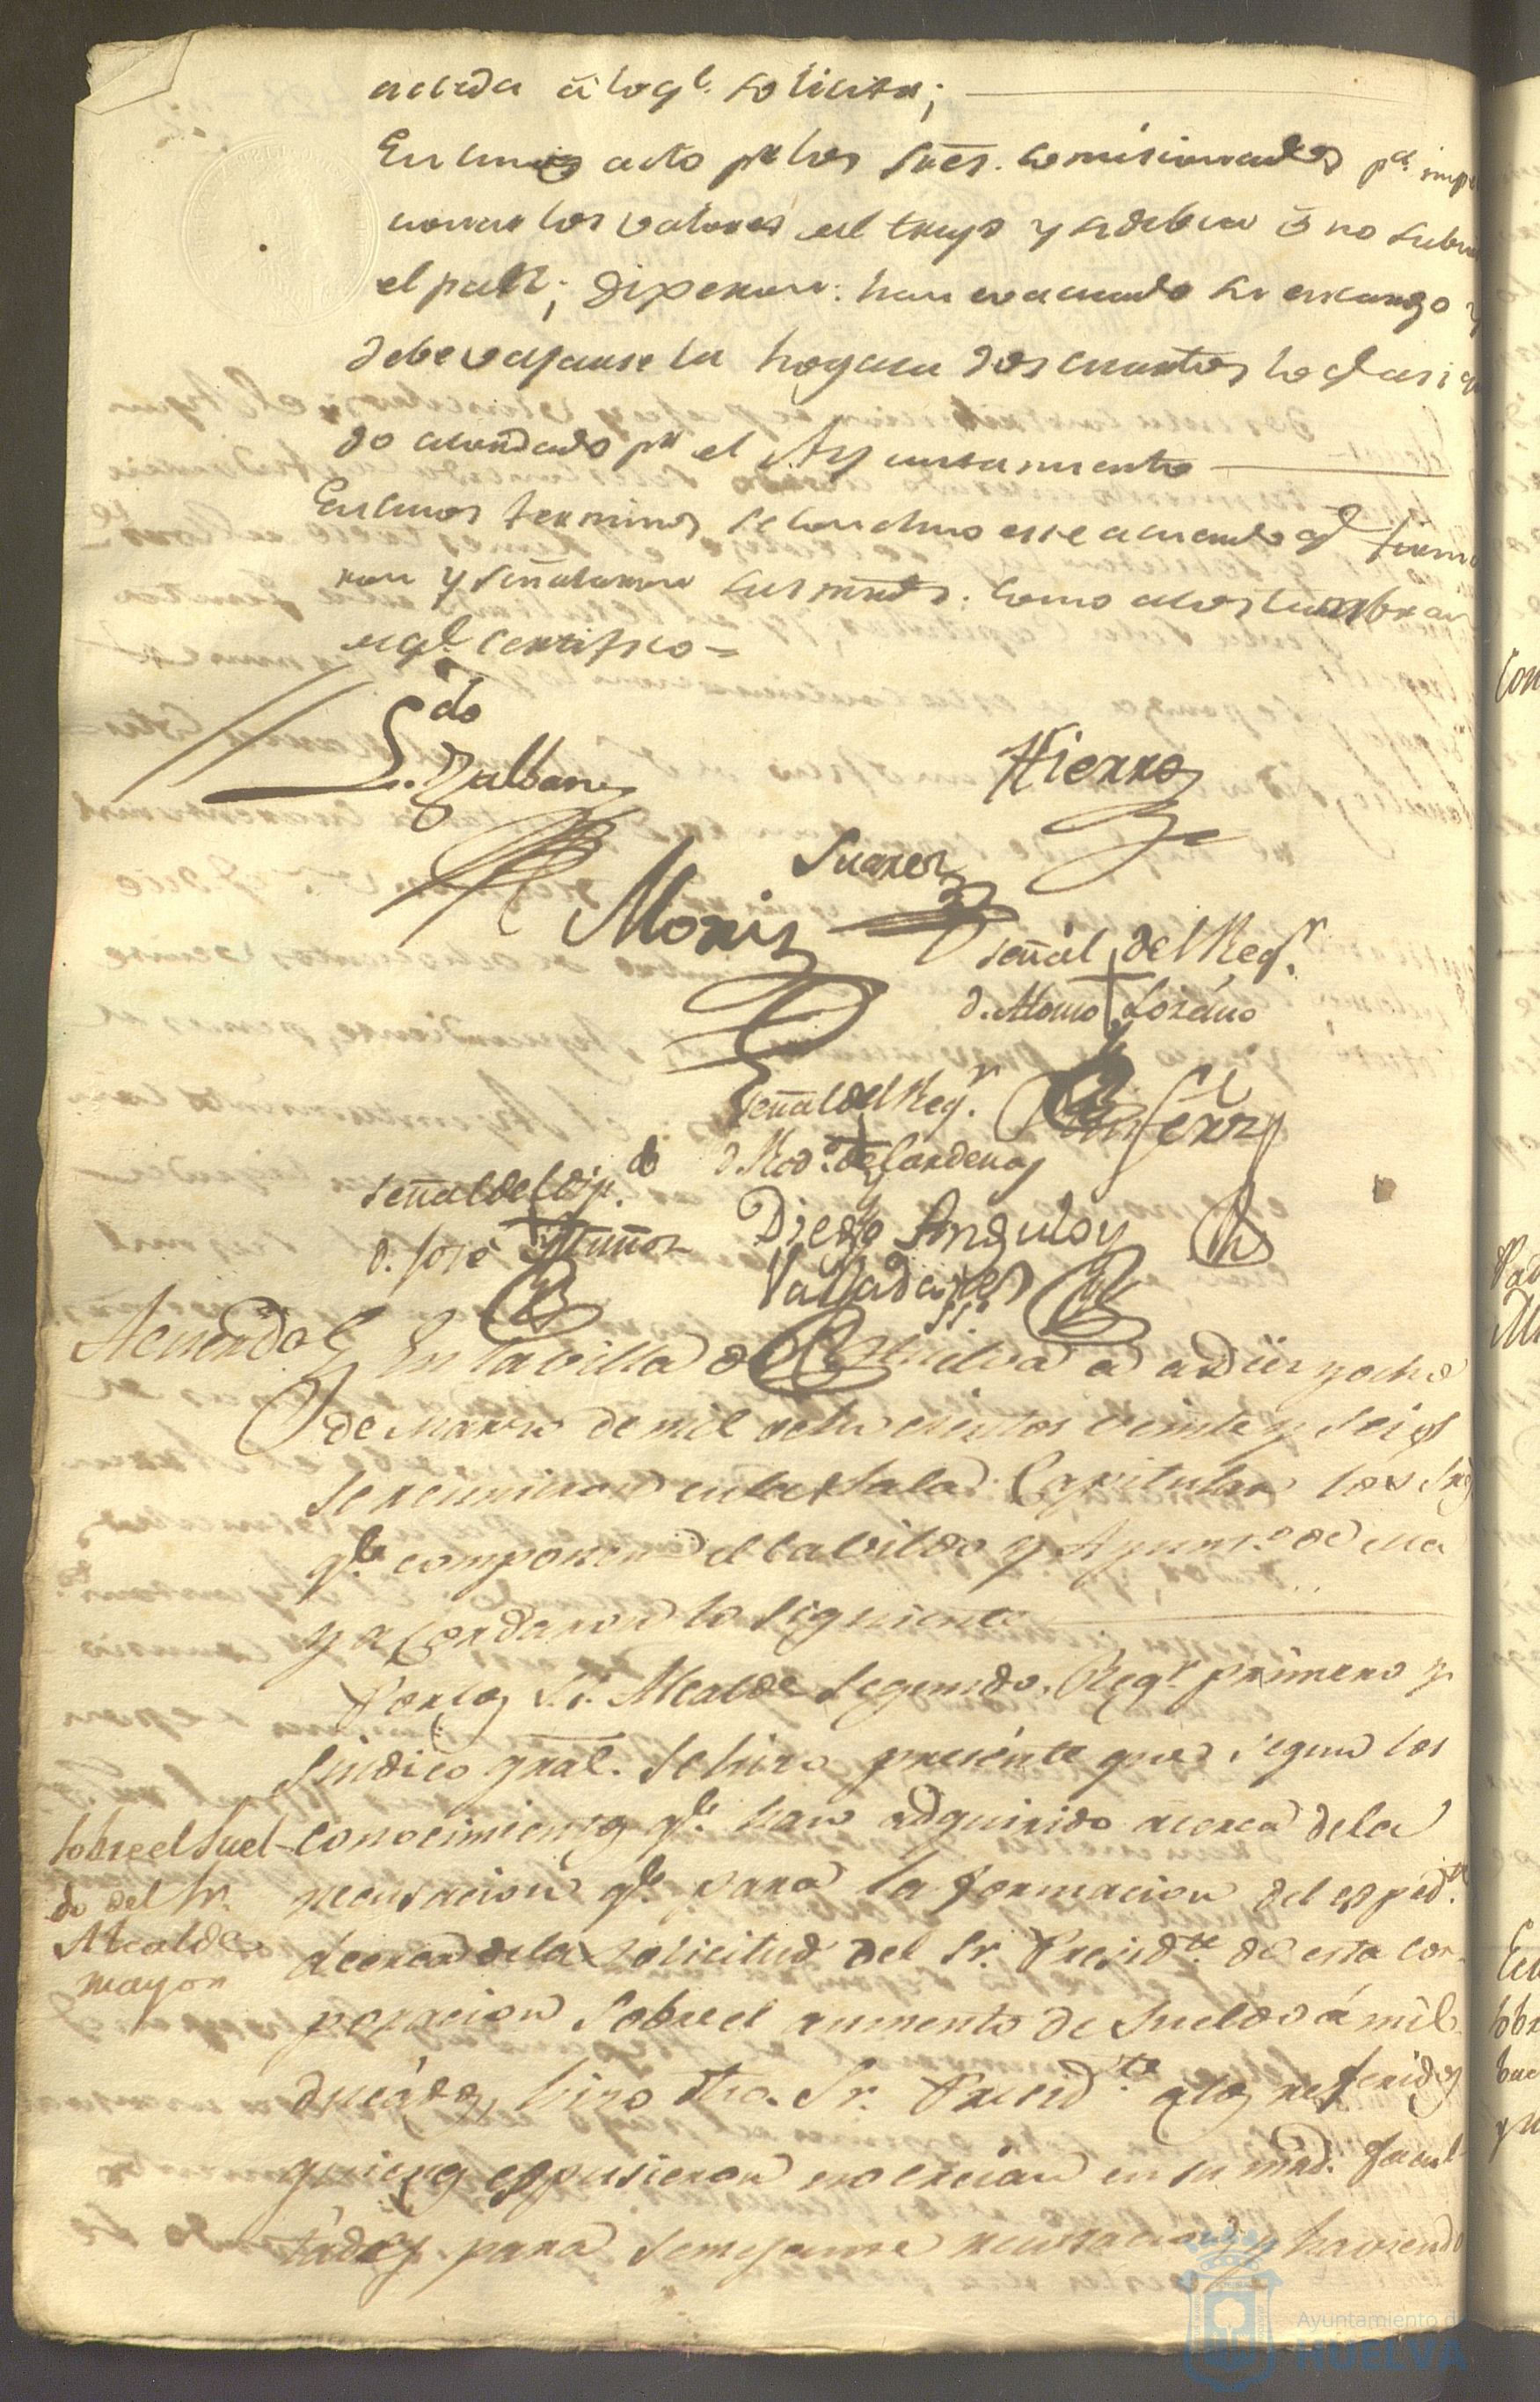 acceda á lo q.e solicita;
En este acto p.r los Sres. comisionados p.a
los valores del trigo y si debia ó no subir
el pan; dixeron: han evacuado su encargo y
debe vajarse la hogaza dos cuartos lo q.
do acordado p.r el Ayuntamiento
terminos se concluyó este acuerdo q. firma
ron y señalaron sus mrds. como acostumbran
de q.e certifico =
L.do
Hierro
Suarez
Moriz
Señal del Reg.r
d. Alonso Lozano
Señal del Reg.r
d. Rod.o de Cardenas
Señal del Dip.do
d. José Muñoz
Diego Angulo y
Valladares
Acuerdo En la villa de Huelva a diez y ocho
de Marzo de mil ochocientos veinte y seis
se reunieron en la Sala Capitular los Sres
q.e componen el Cavildo y Ayunt.o de ella
y acordaron lo siguiente
Por los S.s. Alcalde segundo, Reg.r primero y
Sindico gral. se hizo presente que segun los
Sobre el Suel-
conocimientos q.e han adquirido acerca de la
do del Sr.
recusacion q.e para la formacion del esped.te
Alcalde
acerca de la solicitud del Sr. Presid.te de esta cor-
mayor
poracion sobre el aumento de sueldo á mil
ducados, hizo dho. Sr. Presid.te a los referidos
quienes espusieron no creian en su mrd. facul
tades para semejante recusacion y haviendo
Ayuntamiento de
HUELVA